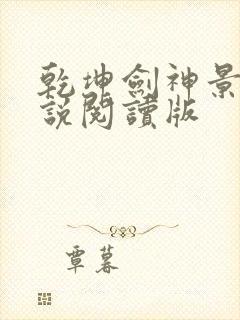 乾坤劍神景
說閱讀版
覃暮